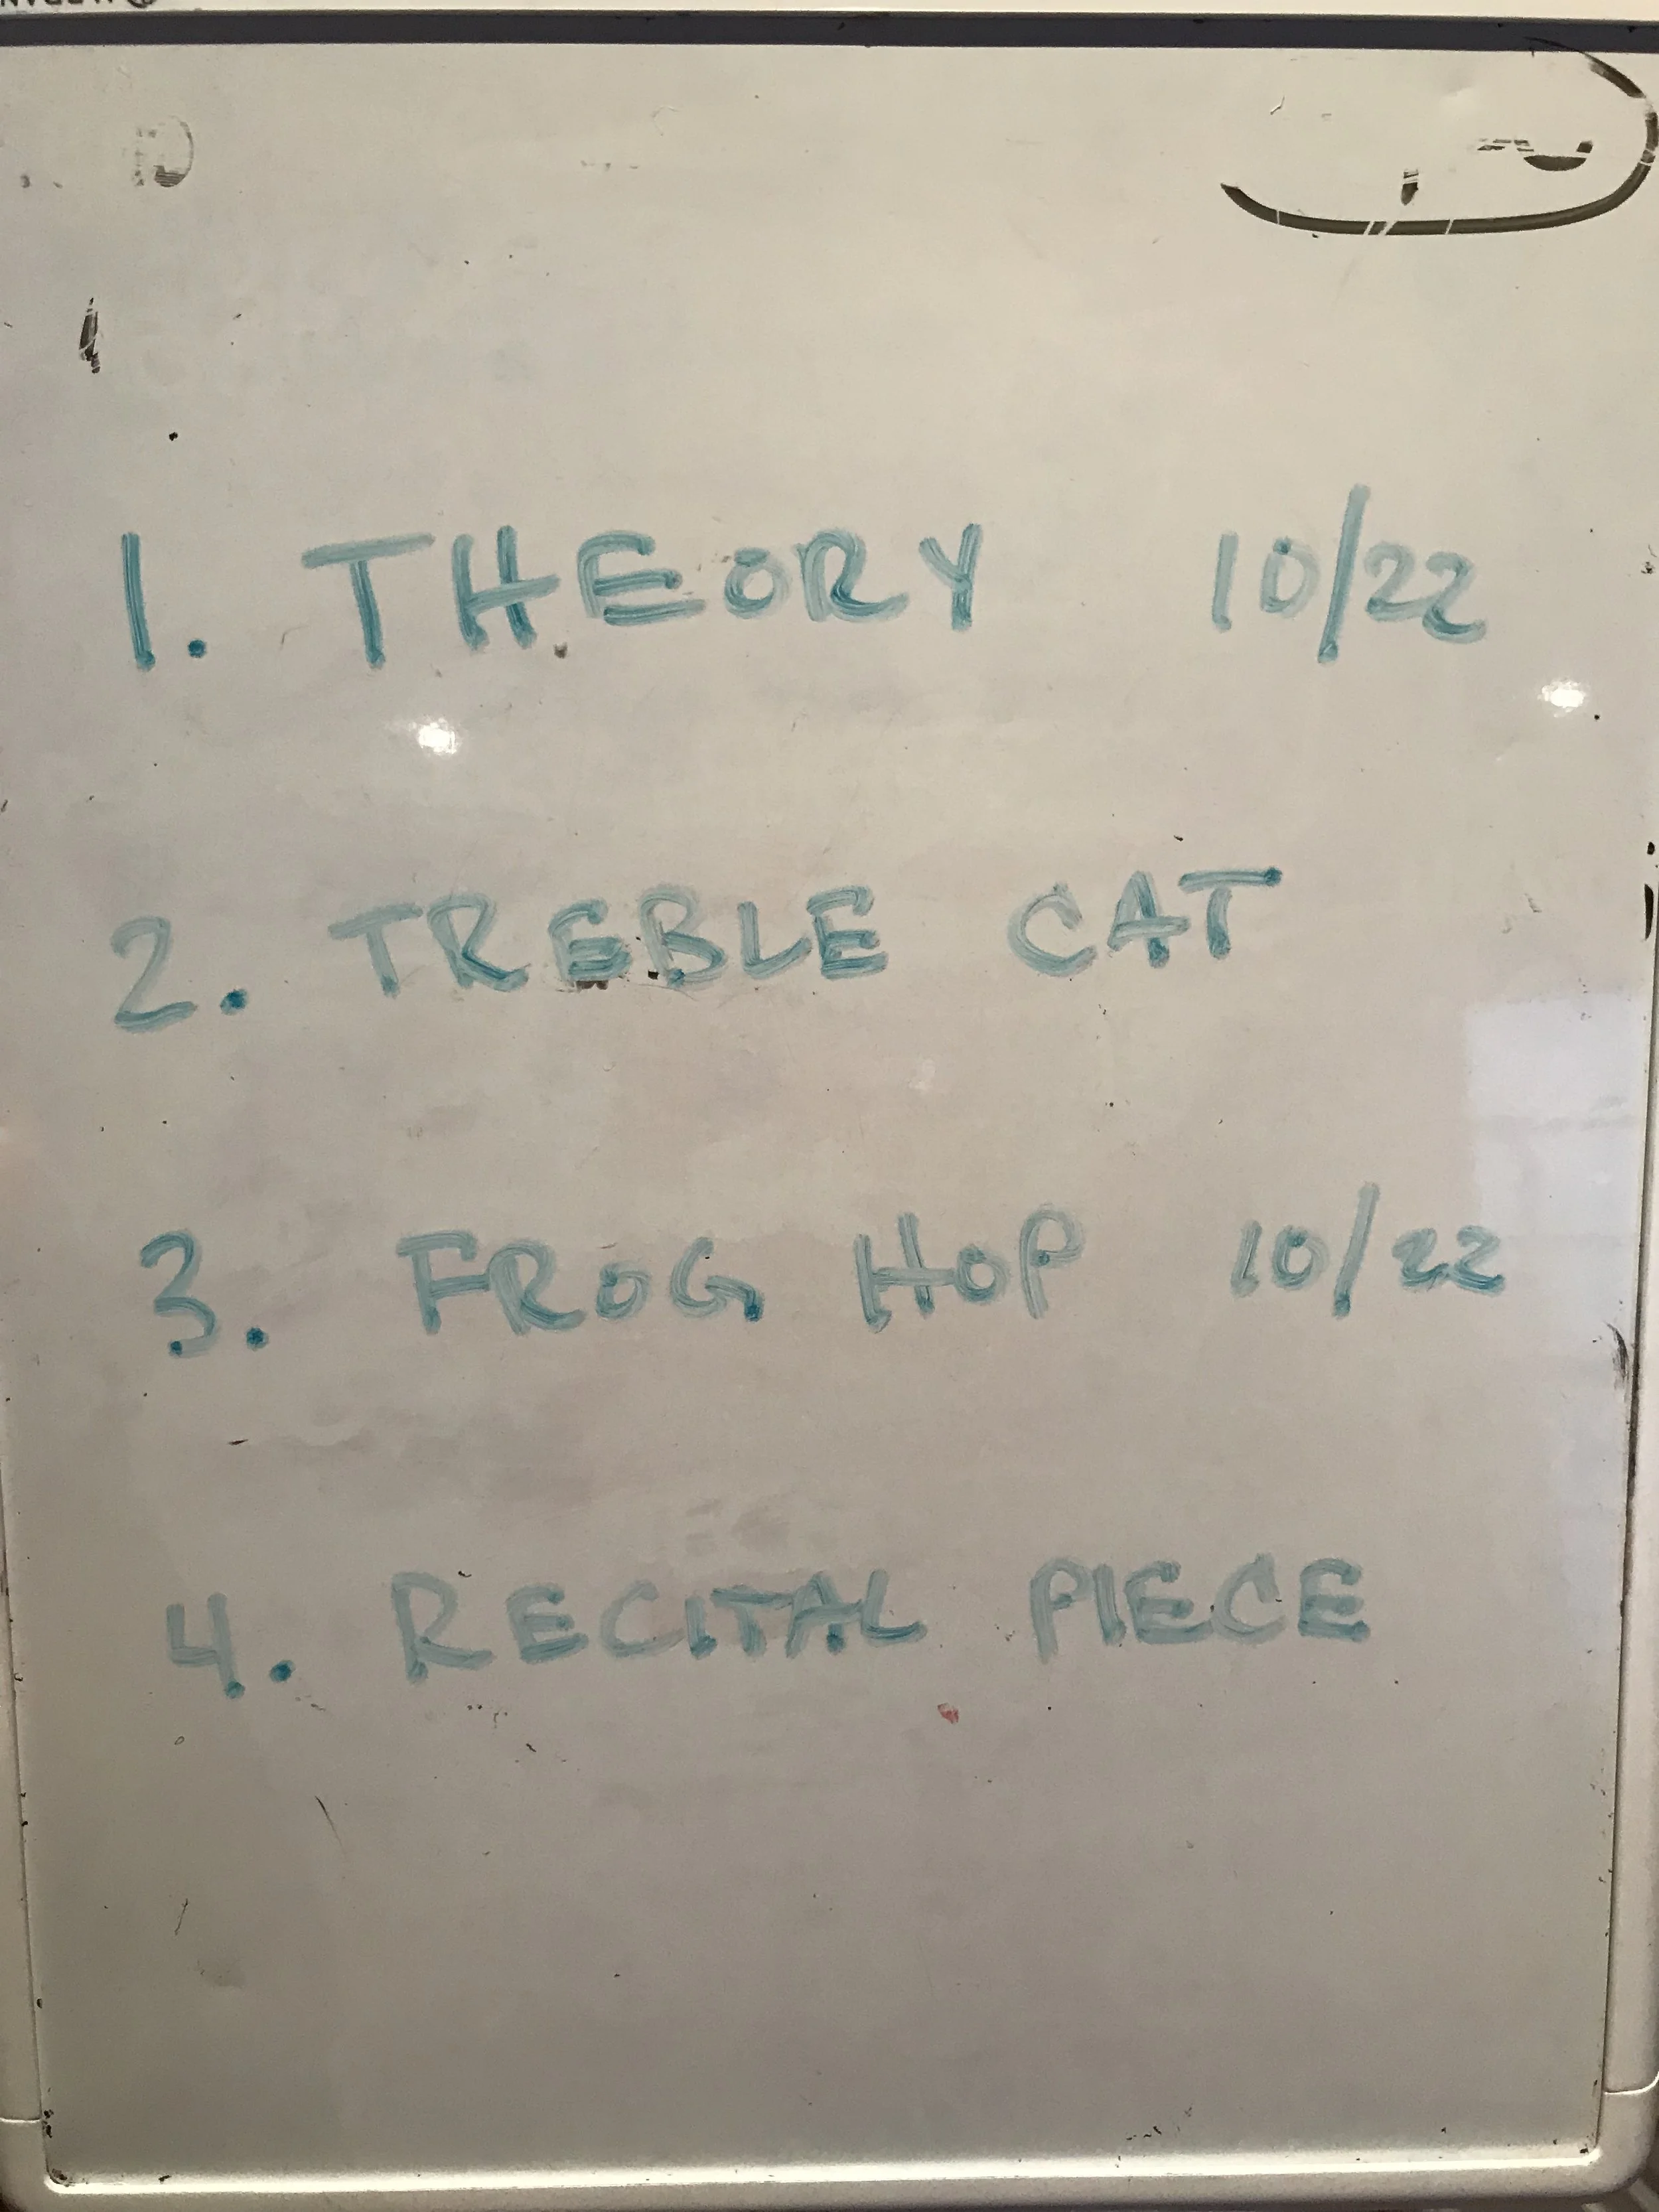 1. THEORY 10/22
2. TREBLE CAT
3. FROG HOP 10/22
4. RECITAL PIECE